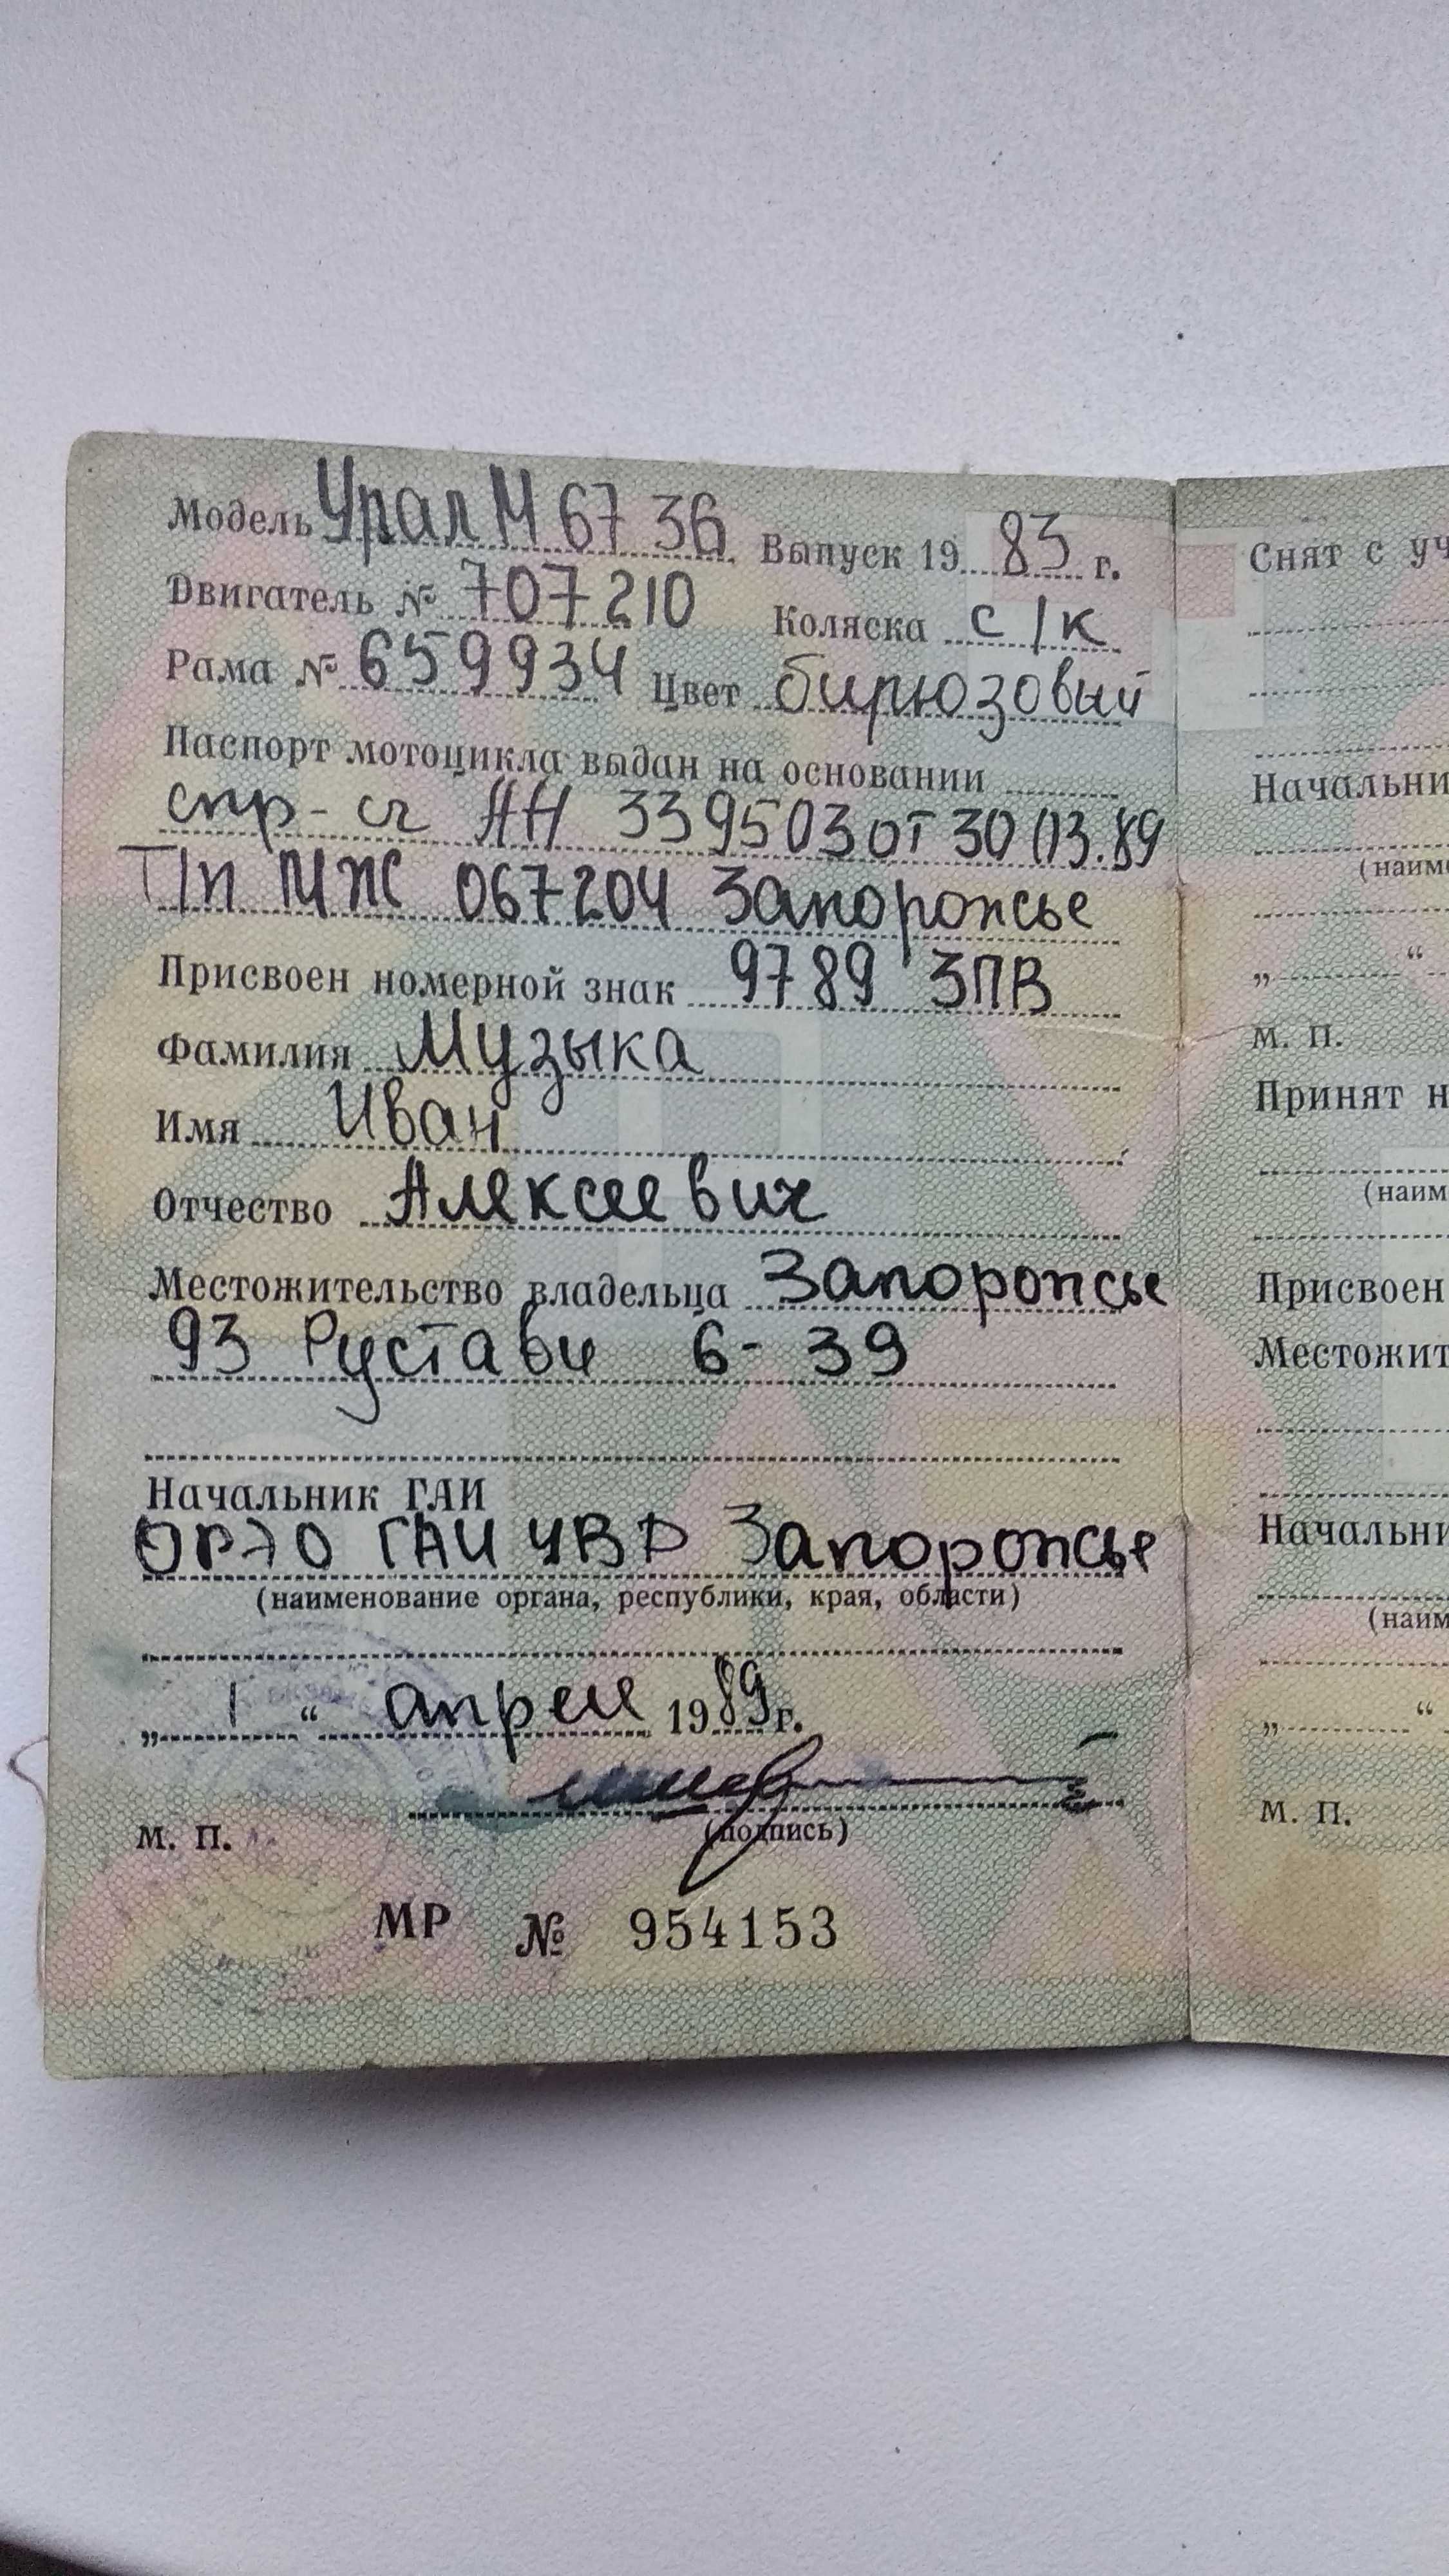 Модель Урал М 67 36 Выпуск 1983 г.
Двигатель № 707210 Коляска с/к
Рама № 659934 Цвет бирюзовый
Паспорт мотоцикла выдан на основании
спр-сч АН 339503 от 30 03.89
Т/п МЖ 067204 Запорожье
Присвоен номерной знак 9789 ЗПВ
Фамилия Музыка
Имя Иван
Отчество Алексеевич
Местожительство владельца Запорожье
93 Рустави 6-39
Начальник ГАИ
ОРЭО ГАИ УВД Запорожье
(наименование органа, республики, края, области)
„ 1 “ апреля 1989 г.
(подпись)
М. П.
МР № 954153
Снят с уч
Начальни
(наим
„ “
М. П.
Принят н
(наим
Присвоен
Местожит
Начальни
(наим
„ “
М. П.